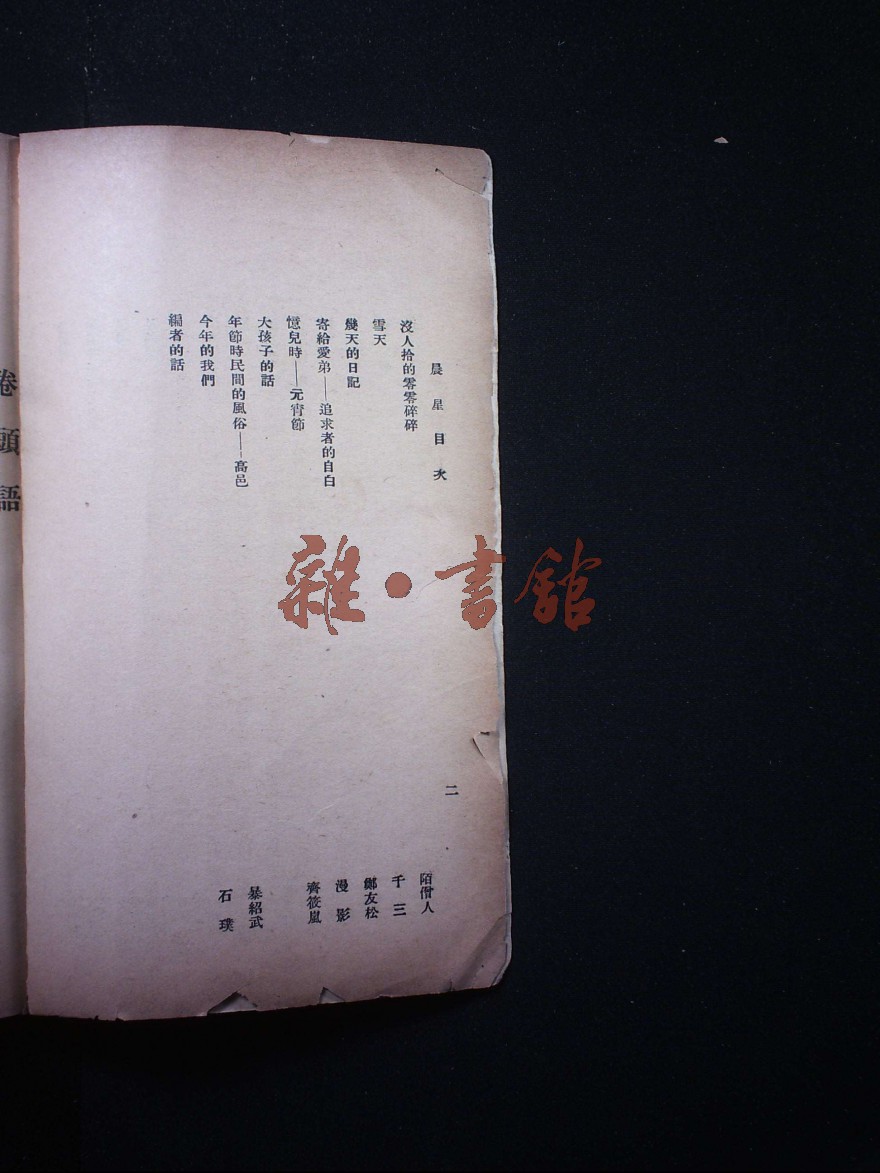 晨星目次
二
沒人拾的零零碎碎 陌僧人
雪天 千三
幾天的日記 鄭友松
寄給愛弟——追求者的自白 漫影
憶兒時——元宵節 齊筱嵐
大孩子的話
年節時民間的風俗——高邑 暴紹武
今年的我們 石璞
編者的話
卷頭語
雜·書館